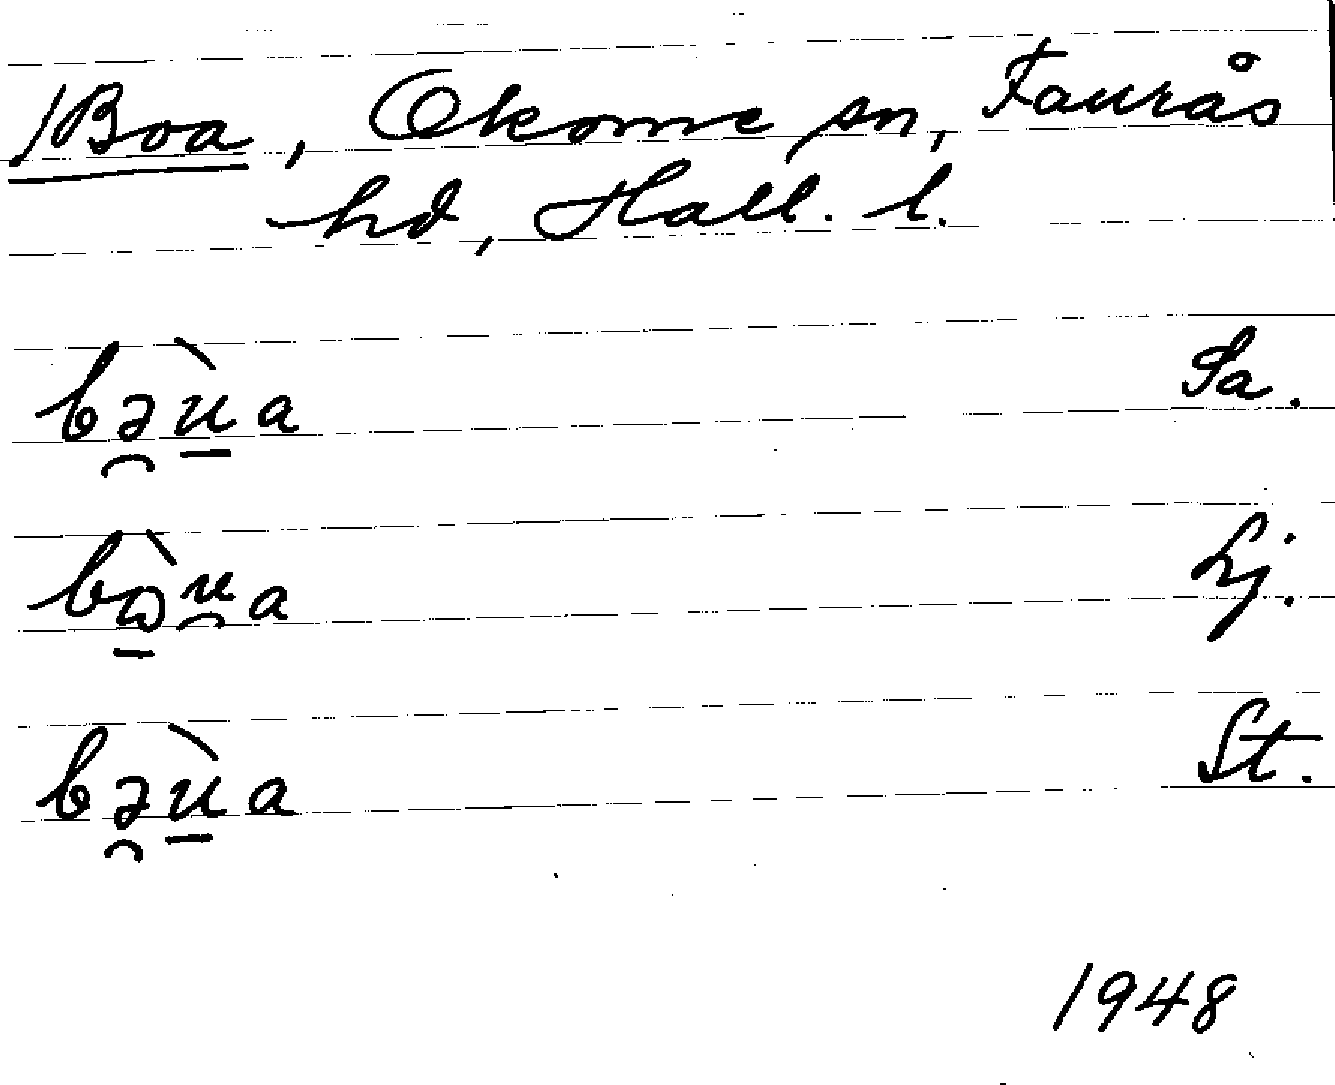 Boa, Okome sn, Faurås
hd, Hall. l.
bə̯ṳ̀a Sa.
bɷ̱̀u̯a Lj.
bə̯ù̱a St.
1948